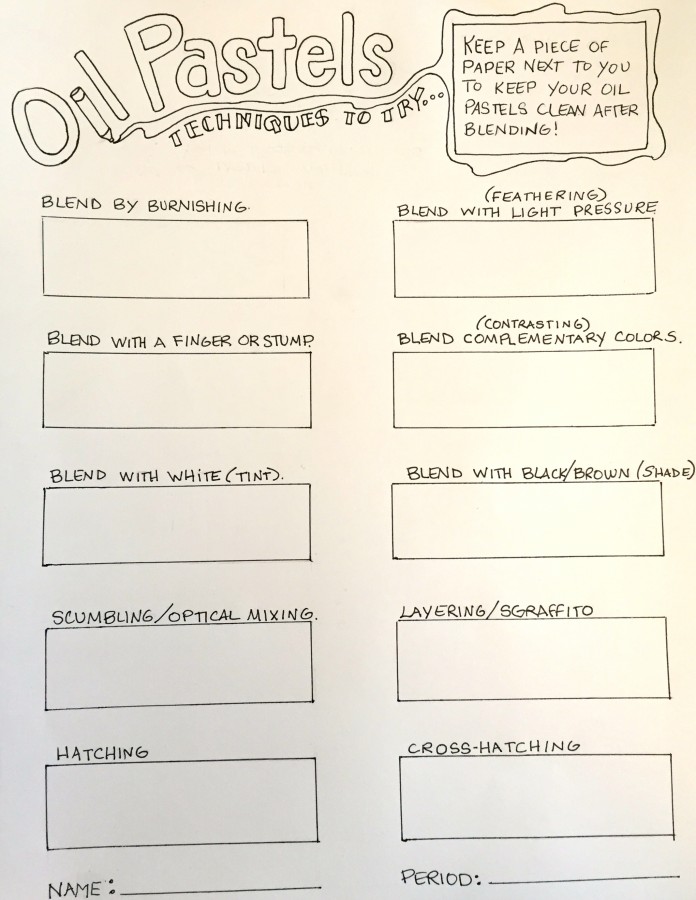 Oil Pastels
TECHNIQUES TO TRY...
KEEP A PIECE OF
PAPER NEXT TO YOU
TO KEEP YOUR OIL
PASTELS CLEAN AFTER
BLENDING!
BLEND BY BURNISHING.
(FEATHERING)
BLEND WITH LIGHT PRESSURE
BLEND WITH A FINGER OR STUMP.
(CONTRASTING)
BLEND COMPLEMENTARY COLORS.
BLEND WITH WHITE (TINT).
BLEND WITH BLACK/BROWN (SHADE)
SCUMBLING/OPTICAL MIXING.
LAYERING/SGRAFFITO
HATCHING
CROSS-HATCHING
NAME:
PERIOD: